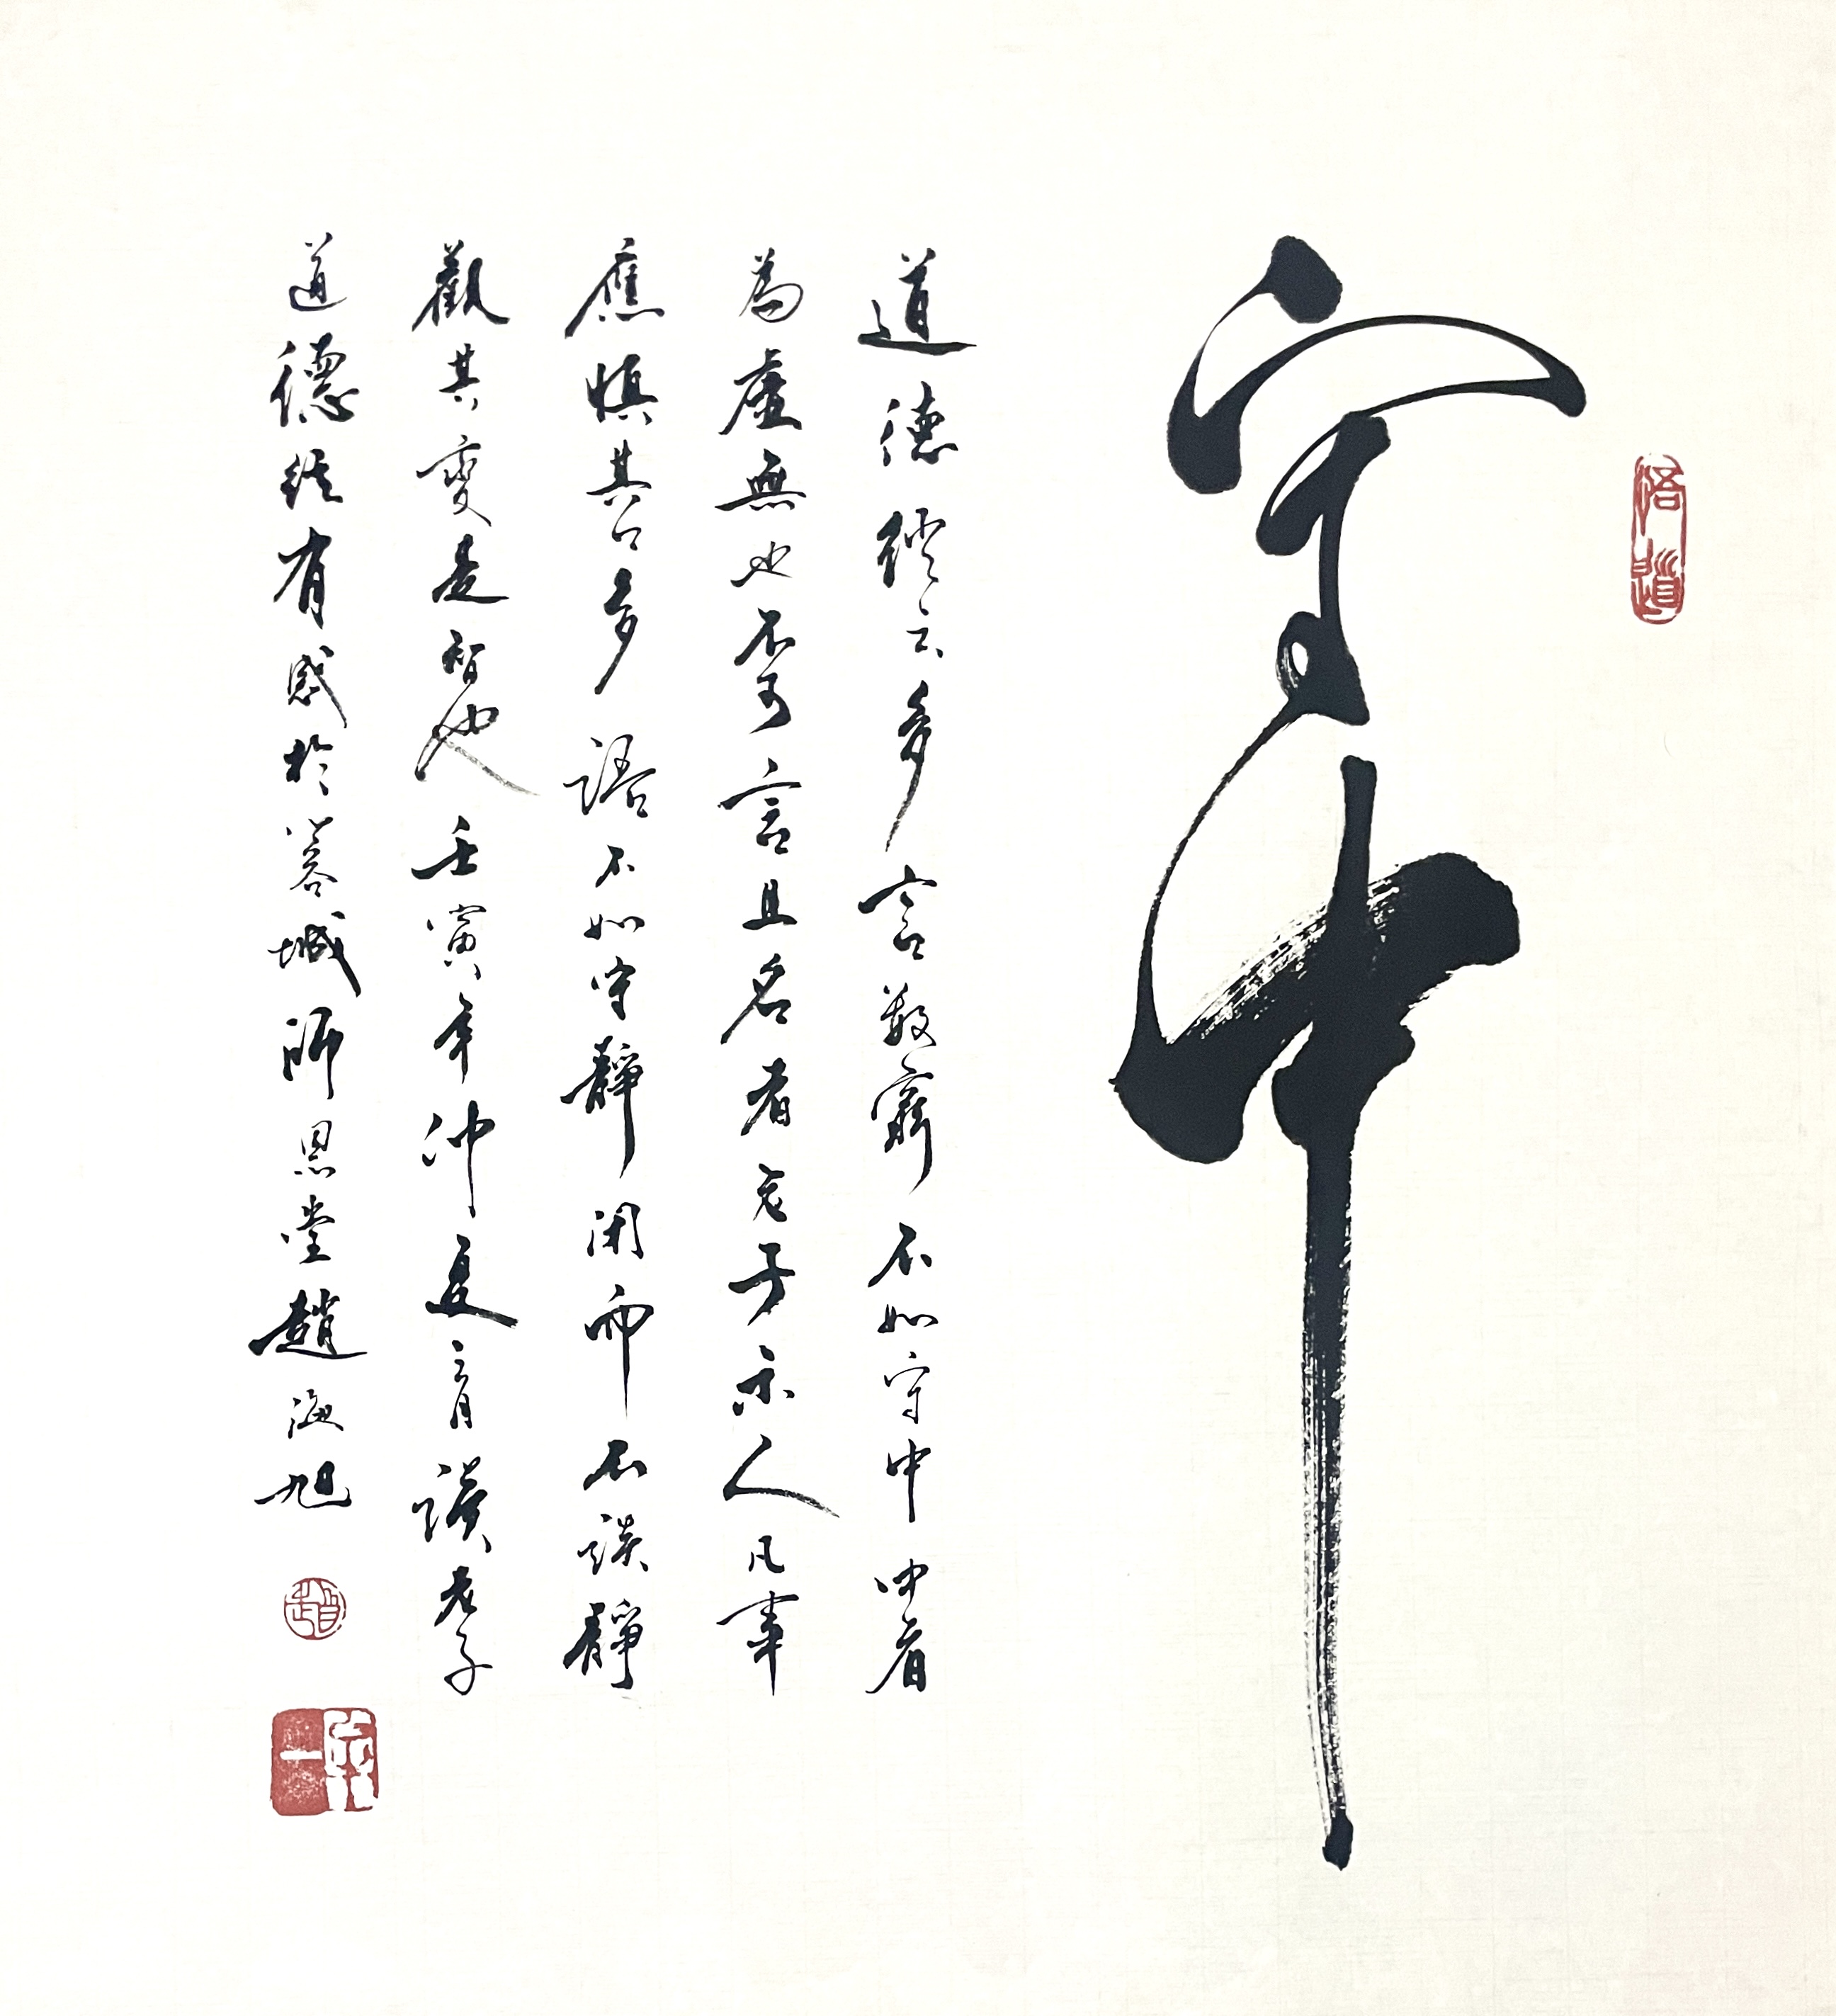 守中
悟道
道德經云多言數窮不如守中中者
為虛無也不可言且名者老子示人凡事
應慎其言多語不如守靜閑而不談靜
觀其變是智也壬寅年仲夏之月讀老子
道德經有感於蓉城師恩堂趙海旭